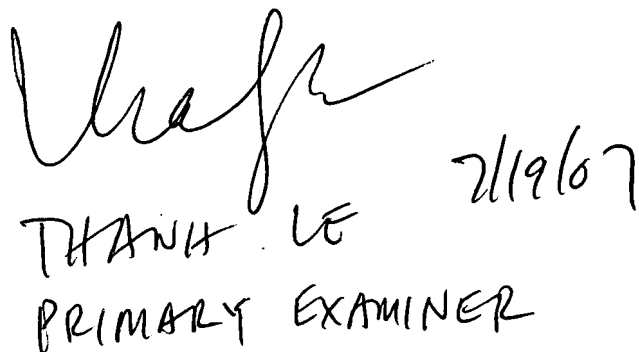 7/19/07
THANH LE
PRIMARY EXAMINER